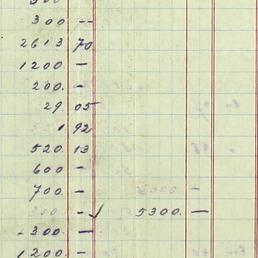 300 --
2613 70
1200 -
200. -
29 05
1 92
520 13
600 -
700. -
300 - ✓ 5300. -
-300. -
1200 -